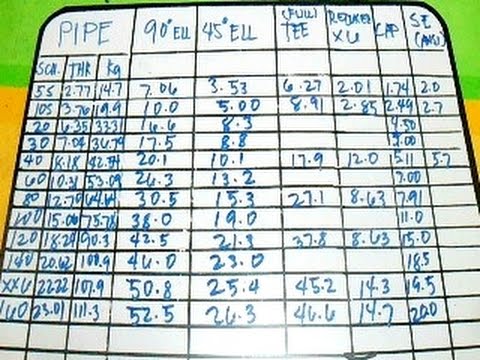 PIPE 90° ELL 45° ELL (FULL) TEE REDUCER XU CAP SE (ANSI)
SCH. THR Kg
5S 2.77 14.7 7.06 3.53 6.27 2.01 1.74 2.0
10S 3.76 19.9 10.0 5.00 8.91 2.85 2.49 2.7
20 6.35 33.31 16.6 8.3 4.50
30 7.04 36.79 17.5 8.8 5.00
40 8.18 20.1 10.1 17.9 12.0 5.11 5.7
60 10.31 53.09 26.3 13.2 7.00
80 12.70 64.64 30.5 15.3 27.1 8.63 7.91
100 15.06 75.78 38.0 19.0 11.0
120 18.24 90.3 42.5 21.3 37.8 8.63 15.0
140 20.62 100.9 46.0 23.0 18.5
XXU 22.22 107.9 50.8 25.4 45.2 14.3 19.5
160 23.01 111.3 52.5 26.3 46.6 14.7 20.0